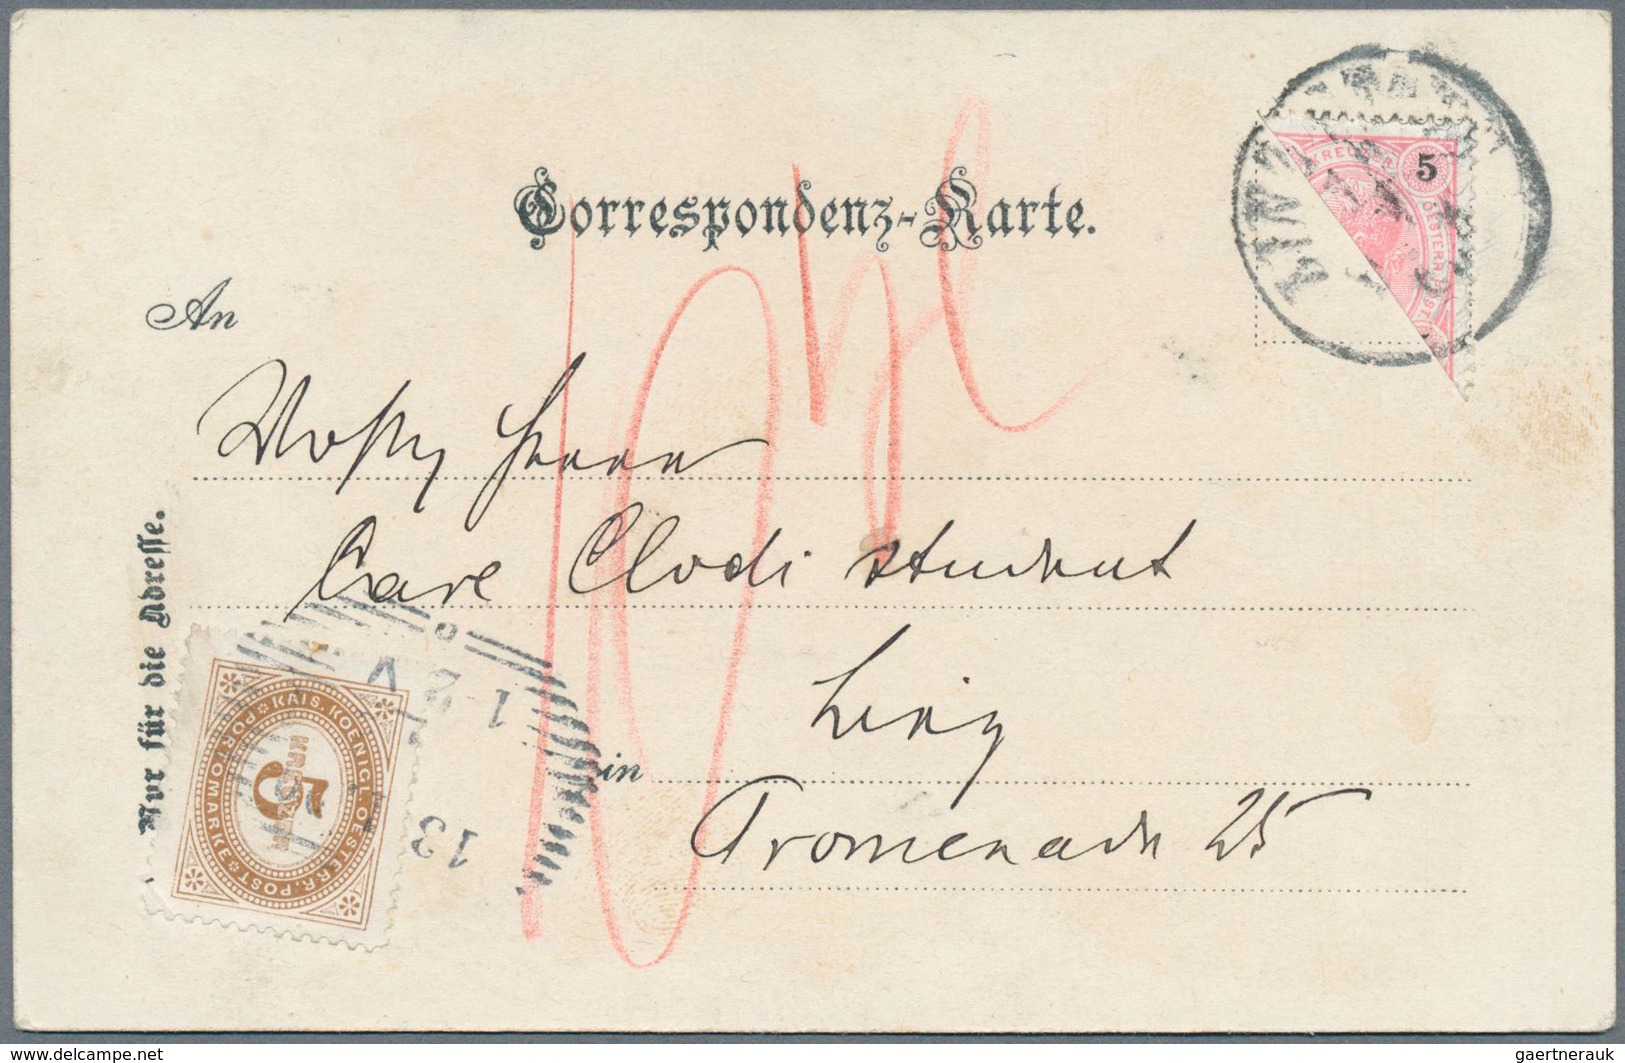 Correspondenz-Karte.
LINZ
KREUZER
5
OESTERR. POST
An
Carl Clodi student
Linz
in
Promenade 25
Nur für die Adresse.
KAIS. KOENIGL. OESTERR. POST
PORTOMARKE
5
KREUZER
1-2
V
13
10
www.delcampe.net
gaertnerauk